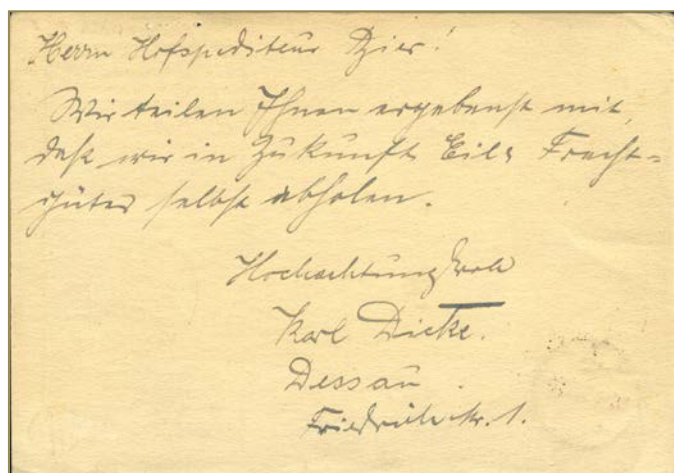 Herrn Hofspediteur Dzier!
Wir teilen Ihnen ergebenst mit,
daß wir in Zukunft Eil& Fracht=
güter selbst abholen.
Hochachtungsvoll
Karl Dicke.
Dessau.
Friedrichstr. 1.